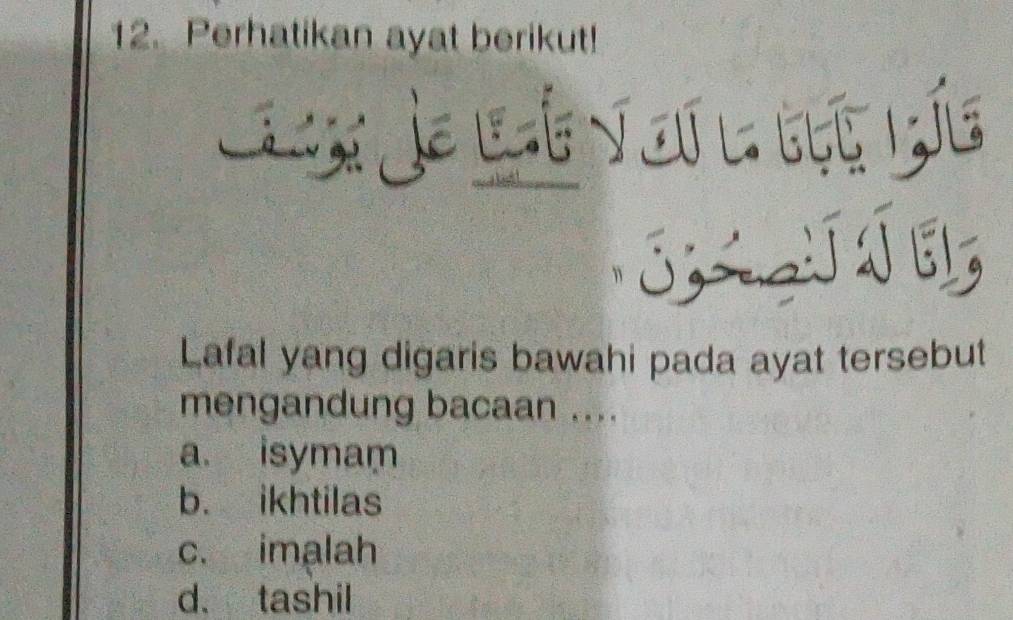 12. Perhatikan ayat berikut!
قَالُوْا يٰٓاَبَانَا مَا لَكَ لَا تَأْمَنَّا عَلٰى يُوْسُفَ
وَاِنَّا لَهٗ لَنٰصِحُوْنَ ۝١١
Lafal yang digaris bawahi pada ayat tersebut
mengandung bacaan ....
a. isymam
b. ikhtilas
c. imalah
d. tashil